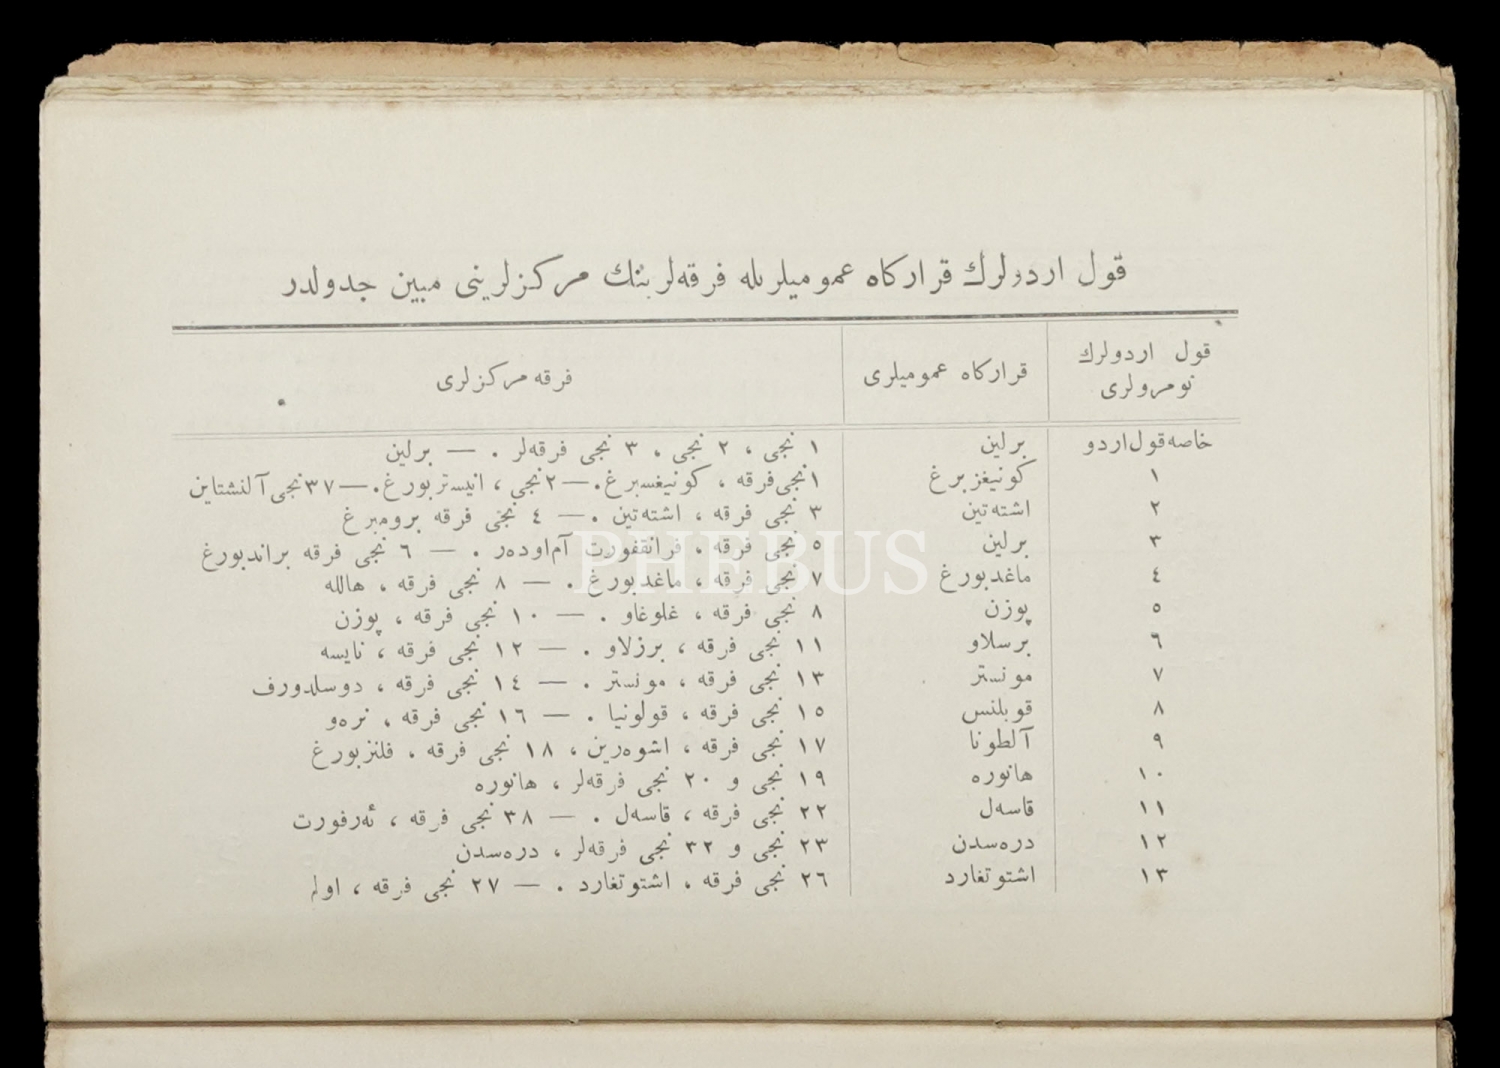 قول اردولرك قراركاه عموميلريله فرقه‌لرينك مركزلرينى مبين جدولدر
قول اردولرك نومرولرى
قراركاه عموميلرى
فرقه مركزلرى
خاصه قول اردو برلين ١ نجى ، ٢ نجى ، ٣ نجى فرقه‌لر . — برلين
١ كونيغزبرغ ١ نجى فرقه ، كونيغسبرغ . — ٢ نجى ، انيستربورغ . — ٣٧ نجى آلنشتاين
٢ اشته‌تين ٣ نجى فرقه ، اشته‌تين . — ٤ نجى فرقه برومبرغ
٣ برلين ٥ نجى فرقه ، فرانقفورت آم‌اوده‌ر . — ٦ نجى فرقه براندبورغ
٤ ماغدبورغ ٧ نجى فرقه ، ماغدبورغ . — ٨ نجى فرقه ، هالله
٥ پوزن ٨ نجى فرقه ، غلوغاو . — ١٠ نجى فرقه ، پوزن
٦ برسلاو ١١ نجى فرقه ، برزلاو . — ١٢ نجى فرقه ، نايسه
٧ مونستر ١٣ نجى فرقه ، مونستر . — ١٤ نجى فرقه ، دوسلدورف
٨ قوبلنس ١٥ نجى فرقه ، قولونيا . — ١٦ نجى فرقه ، تره‌و
٩ آلطونا ١٧ نجى فرقه ، اشوه‌رين ، ١٨ نجى فرقه ، فلنزبورغ
١٠ هانوره ١٩ نجى و ٢٠ نجى فرقه‌لر ، هانوره
١١ قاسه‌ل ٢٢ نجى فرقه ، قاسه‌ل . — ٣٨ نجى فرقه ، ئه‌رفورت
١٢ دره‌سدن ٢٣ نجى و ٣٢ نجى فرقه‌لر ، دره‌سدن
١٣ اشتوتغارد ٢٦ نجى فرقه ، اشتوتغارد . — ٢٧ نجى فرقه ، اولم
PHEBUS